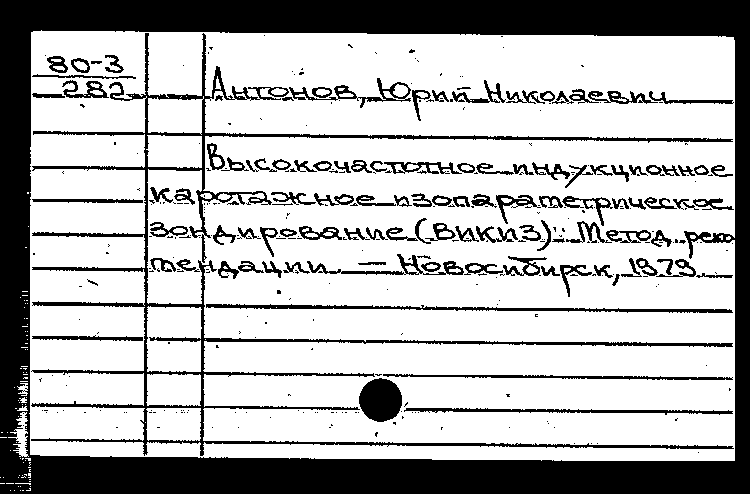 80-3
282
Антонов, Юрий Николаевич
Высокочастотное индукционное
каротажное изопараметрическое
зондирование (ВИКИЗ): Метод. реко
мендации. — Новосибирск, 1979.